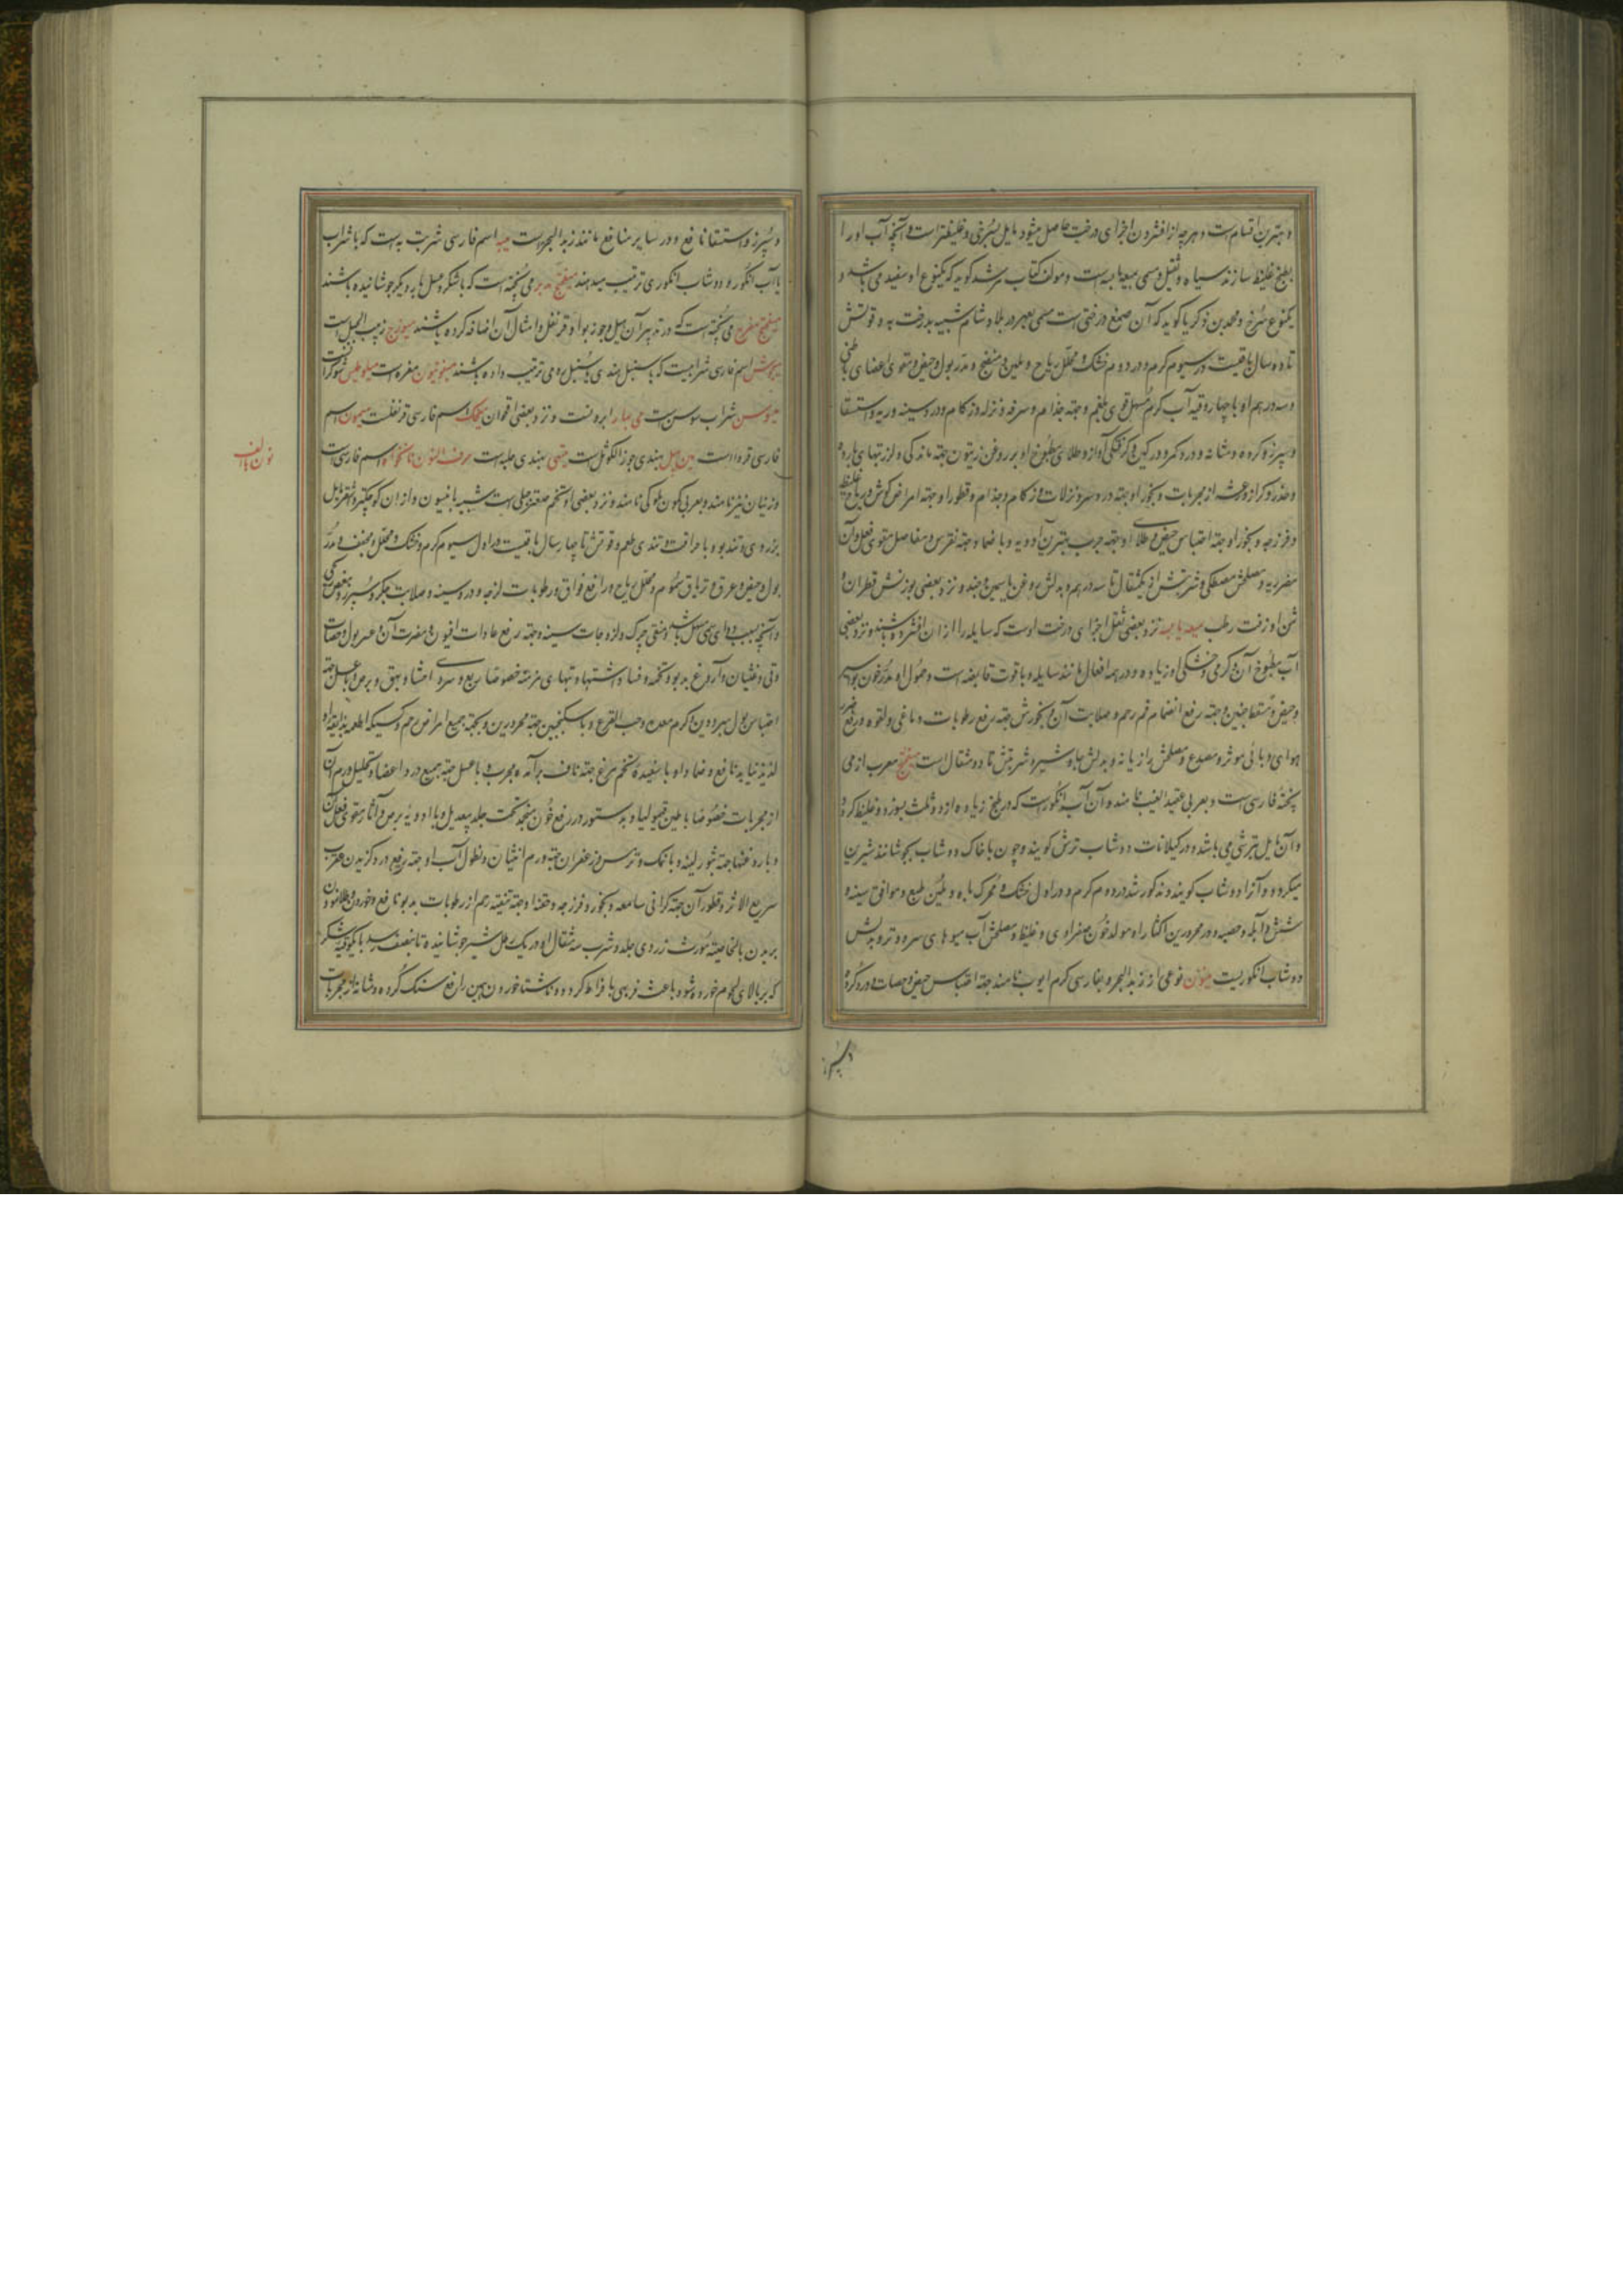 و بهترین اقسام است و هرچه از افشردن اجزای درخت حاصل میشود مایل بسرخی و غلیظتر است و آنچه آب او را
بطبخ غلیظ سازند سیاه و ثقیل و مسمی بمیعه یابسه است و مولف کتاب مرشد گوید که یکنوع او سفید می باشد و
یکنوع سرخ و محمد بن زکریا گوید که آن صمغ درختی است مسمی بعبهر در بلاد شام شبیه بدرخت به و قوتش
تا ده سال باقیست در سیوم گرم و در دوم خشک و محلل ریاح و ملین و منضج و مدر بول و حیض و مقوی اعضای باطنی
و سه درهم او با چهار وقیه آب گرم مسهل قوی بلغم و جهة جذام و سرفه و نزله و زکام و درد سینه و ریه و استسقا
و سپرز و گرده و مثانه و درد کمر و ورکین و گرفتگی آواز و طلای مطبوخ او بر روغن زیتون جهة ماندگی و لرز تبهای بارده
و خدر و کزاز و رعشه از مجربات و بخور او جهة درد سر و نزلات و زکام و جذام و قطور او جهة امراض گوش و ریاح غلیظ
و فرزجه و بخور او جهة احتباس حیض و طلای او جهة جرب بهترین ادویه و با ضماد جهة نقرس و مفاصل مقوی فعل آن
مضر ریه و مصلحش مصطکی و شربتش از یکمثقال تا سه درهم و بدلش روغن یاسمین و جند و نزد بعضی بوزنش قطران و
ثمن او زفت رطب میعه یابسه نزد بعضی ثقل اجزای درخت اوست که سایله را از آن افشرده باشند و نزد بعضی
آب مطبوخ آن و گرمی و خشکی او زیاده و در همه افعال مانند سایله و با قوت قابضه است و حمول او مدر خون بواسیر
و حیض و مسقط جنین و جهة رفع انضمام فم رحم و صلابت آن و بخورش جهة رفع رطوبات دماغی و لقوه و رفع ضرر
هوای وبائی موثر و مصدع و مصلحش رازیانه و بدلش جاوشیر و شربتش تا دو مثقال است میفختج معرب از می
پخته فارسی است و بعربی عقید العنب نامند و آن آب انگور است که در طبخ زیاده از دو ثلث بسوزد و غلیظ گردد
و آن مایل بترشی می باشد و در گیلانات دوشاب ترش گویند و چون با خاک دوشاب بجوشانند شیرین
میگردد و آنرا دوشاب گویند و مذکور شد در دوم گرم و در اول خشک و محرک باه و ملین طبع و موافق سینه و
شش و آبله و حصبه و در محرورین اکثار او مولد خون صفراوی و غلیظ و مصلحش آب میوهای سرد و تر و بدلش
دوشاب انگوریست میتون نوعی از زبد البحر و بفارسی کرم ایوب نامند جهة احتباس حیض و حصات و درد گرده
و سپرز
و سپرز و استسقا نافع و در سایر منافع مانند زبد البحر است میبه اسم فارسی شربت به است که با شراب
یا آب انگور و دوشاب انگوری ترتیب میدهند میفختج مدبر می پخته است که با شکر و عسل بار دیگر جوشانیده باشند
میفختج مفرح می پخته است که در تدبیر آن هیل و جوز بوا و قرنفل و امثال آن اضافه کرده باشند میویزج زبیب الجبل است
اسم فارسی شرابیست که با سنبل هندی و سنبل رومی ترتیب داده باشند
میوسن شراب سوسن است ابرونست و نزد بعضی اقحوان میخک اسم فارسی قرنفلست میمون اسم
فارسی قرد است مین پهل بهندی جوز الکوثل است میتهی بهندی حلبه است حرف النون نانخواه اسم فارسی است
و زنیان نیز نامند و بعربی کمون ملوکی نامند و نزد بعضی او تخم صعتر جبلی است شبیه بانیسون و از آن کوچکتر و اشقر مایل
بزردی و تند بو و با حرافت و تندی طعم و قوتش تا چهار سال باقیست در اول سیوم گرم و خشک و محلل و مجفف و مدر
بول و حیض و عرق و تریاق سموم و محلل ریاح و رافع فواق و رطوبات لزجه و درد سینه و صلابت جگر و سپرز و مغص
و آنچه بسبب دوای سمی مسهل باشد و منقی چرک و لزوجات سینه و جهة رفع عادات افیون و مضرت آن و عسر بول و حصات
و قی و غثیان و آروغ بد بو و تخمه و فساد اشتها و تبهای مزمنه خصوصا ربع و سردی احشا و بهق و برص و با عسل جهة
احتباس بول مبرودین و کرم معده و حب القرع و با سکنجبین جهة محرورین و بجهة جمیع امراض رحم و کسیکه اطعمه بذایقه او
لذیذ ننماید نافع و ضماد او با سفیده تخم مرغ جهة ناف برآمده مجرب و با عسل جهة جمیع درد اعضا و تحلیل ورم آن
از مجربات خصوصا با طین قیمولیا و بدستور در رفع خون منجمد تحت جلد بیعدیل و با ادویه برص و آثار مقوی فعل آن
و با روغنها جهة بثور لبنیه و با نمک و ترمس و زعفران جهة ورم انثیان و نطول آب او جهة رفع درد گزیدن عقرب
سریع الاثر و قطور آن جهة گرانی سامعه و بخور و فرزجه و حقنه او جهة تنقیه رحم از رطوبات بد بو نافع و خوردن و طلا نمودن
بر بدن بالخاصیته مورث زردی جلد و شرب سه مثقال او در یک رطل شیر جوشانیده تا بنصف رسد با یکوقیه شکر
که بر بالای لحوم خورده شود باعث فربهی بافراط گردد و ناشتا خوردن همین رافع سنگ گرده و مثانه از مجربات
نون با الف